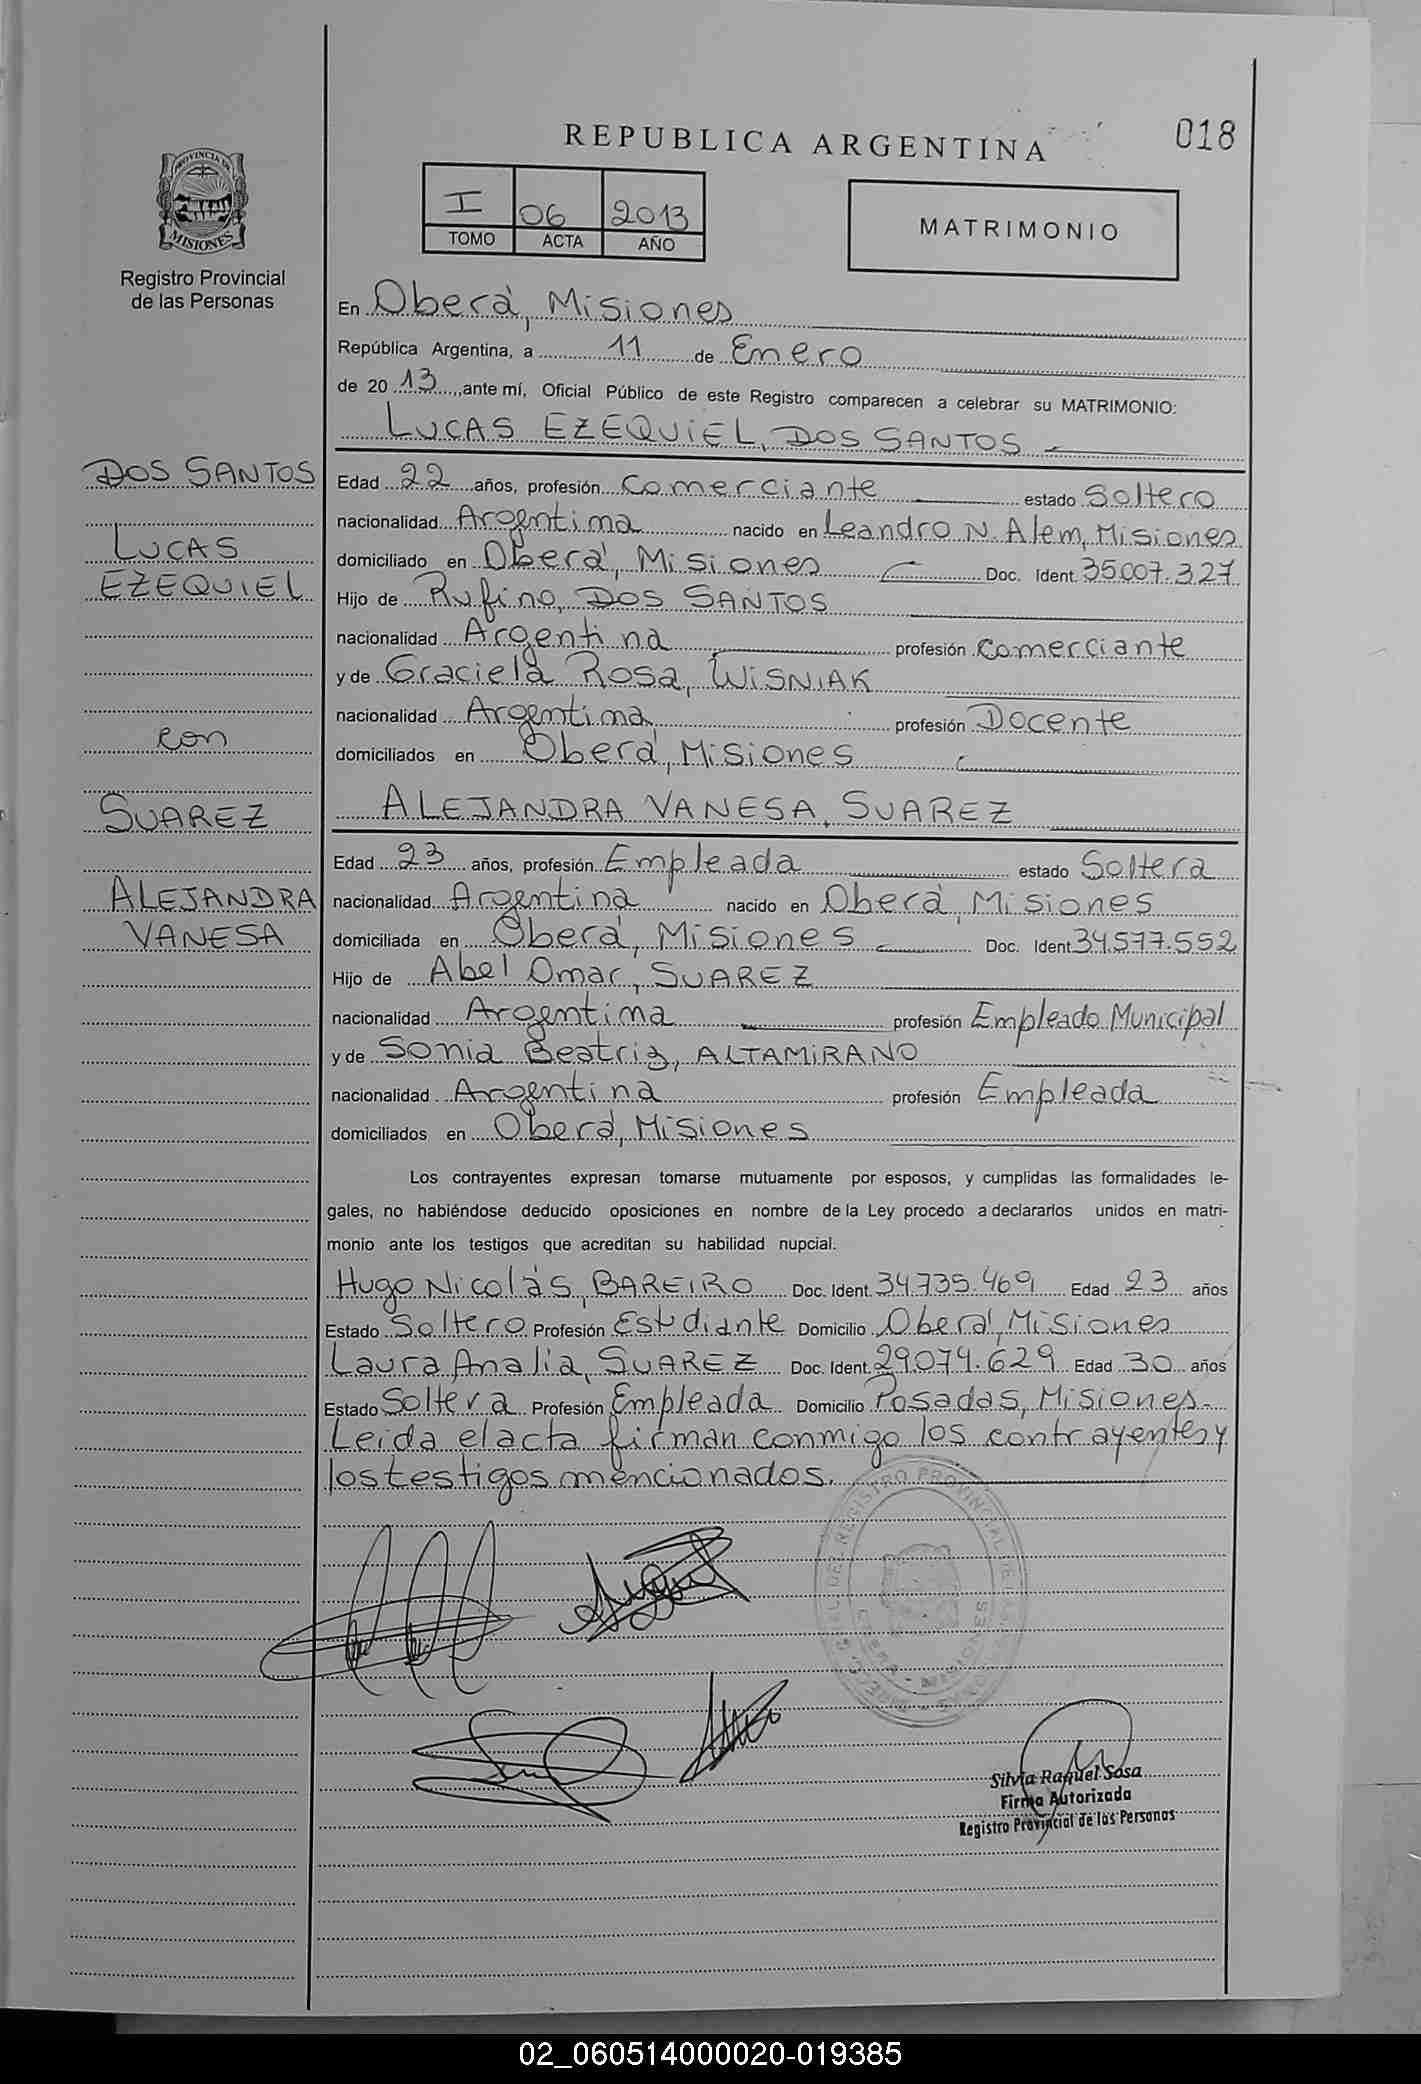 REPUBLICA ARGENTINA
018
PROVINCIA DE
MISIONES
Registro Provincial
de las Personas
I 06 2013
TOMO ACTA AÑO
MATRIMONIO
En Oberá, Misiones
República Argentina, a 11 de Enero
de 20 13, ante mí, Oficial Público de este Registro comparecen a celebrar su MATRIMONIO:
LUCAS EZEQUIEL, DOS SANTOS
DOS SANTOS
LUCAS
EZEQUIEL
con
SUAREZ
ALEJANDRA
VANESA
Edad 22 años, profesión Comerciante estado Soltero
nacionalidad Argentina nacido en Leandro N. Alem, Misiones
domiciliado en Oberá, Misiones Doc. Ident. 35.007.327
Hijo de Rufino, DOS SANTOS
nacionalidad Argentina profesión Comerciante
y de Graciela Rosa, WISNIAK
nacionalidad Argentina profesión Docente
domiciliados en Oberá, Misiones
ALEJANDRA VANESA, SUAREZ
Edad 23 años, profesión Empleada estado Soltera
nacionalidad Argentina nacido en Oberá, Misiones
domiciliada en Oberá, Misiones Doc. Ident 34.577.552
Hijo de Abel Omar, SUAREZ
nacionalidad Argentina profesión Empleado Municipal
y de Sonia Beatriz, ALTAMIRANO
nacionalidad Argentina profesión Empleada
domiciliados en Oberá, Misiones
Los contrayentes expresan tomarse mutuamente por esposos, y cumplidas las formalidades le-
gales, no habiéndose deducido oposiciones en nombre de la Ley procedo a declararlos unidos en matri-
monio ante los testigos que acreditan su habilidad nupcial.
Hugo Nicolás, BAREIRO Doc. Ident. 34.735.469 Edad 23 años
Estado Soltero Profesión Estudiante Domicilio Oberá, Misiones
Laura Analia, SUAREZ Doc. Ident. 29.074.629 Edad 30 años
Estado Soltera Profesión Empleada Domicilio Posadas, Misiones.
Leida el acta firman conmigo los contrayentes y
los testigos mencionados.
Silvia Raquel Sosa
Firma Autorizada
Registro Provincial de las Personas
02_060514000020-019385